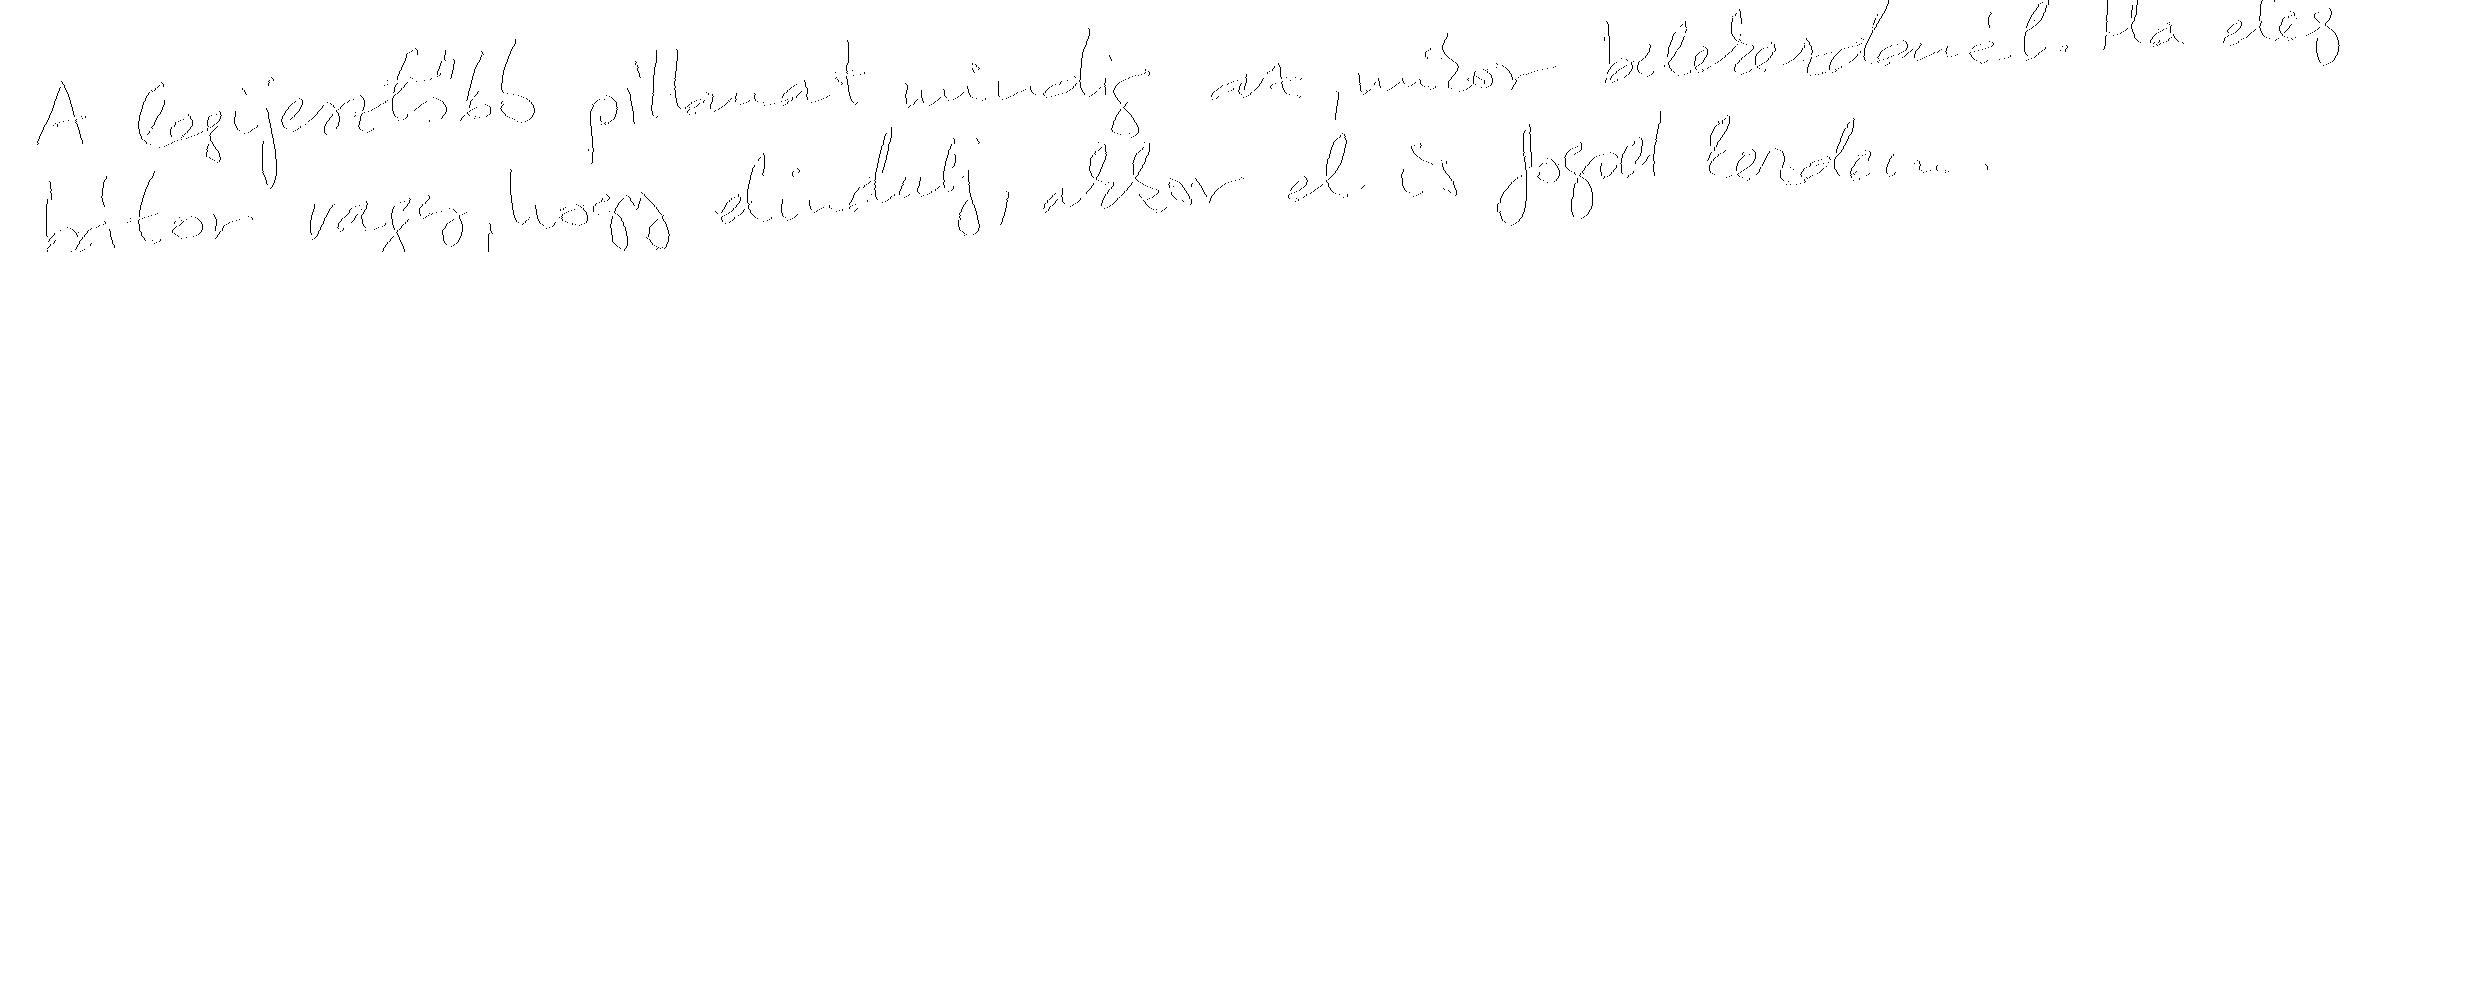 A legijesztőbb pillanat mindig az, mikor belekezdenél. Ha elég
bátor vagy, hogy elindulj, akkor el is fogod kezdeni.